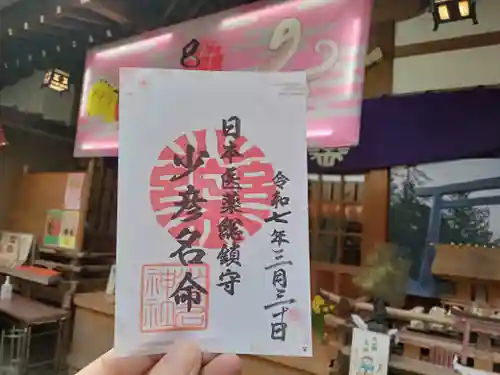 令和七年三月三十日
日本医薬総鎮守
少彦名命
神社